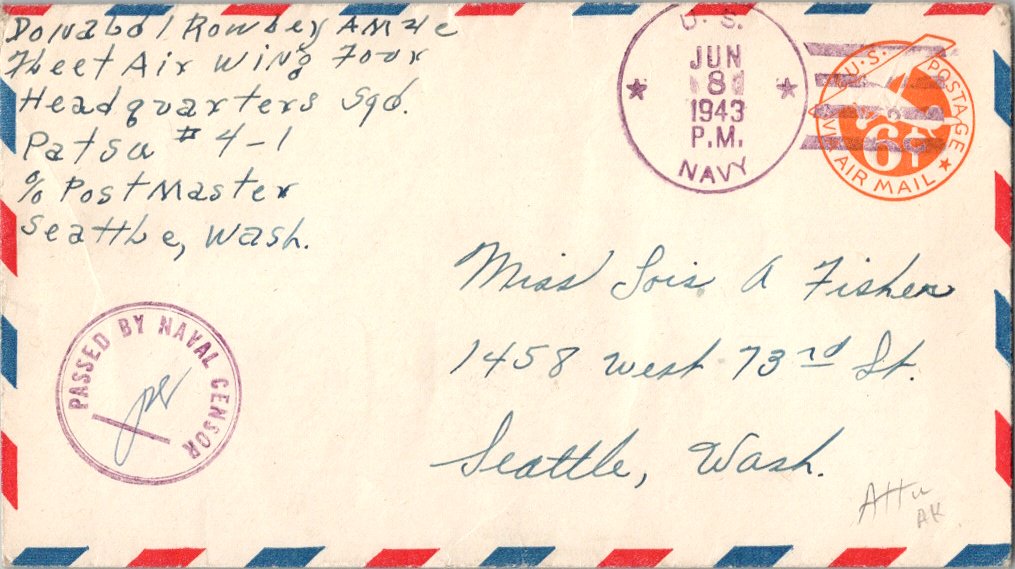 Donald L Rowley AM2/c
Fleet Air Wing Four
Headquarters Sqd.
PatSu #4-1
% PostMaster
Seattle, Wash.
U.S.
JUN
8
1943
P.M.
NAVY
U.S. POSTAGE
6¢
VIA AIR MAIL
Miss Lois A Fisher
1458 West 73rd St.
Seattle, Wash.
PASSED BY NAVAL CENSOR
Attu
AK